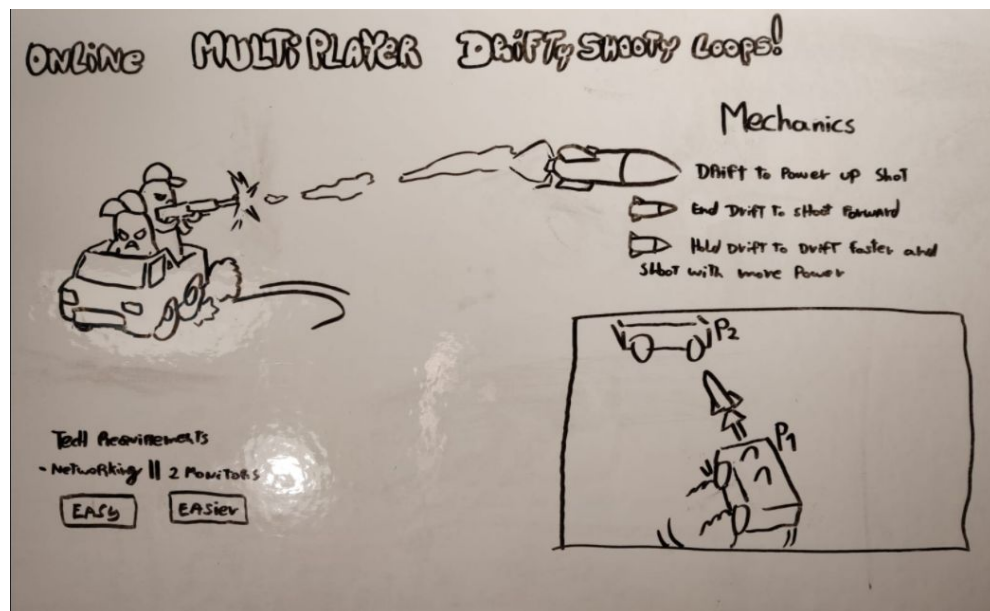 ONLiNe MULTiPLAYER DRiFTy SHOOTy LOOPS!
Mechanics
DRift to Power up Shot
End DRifT To shoot Forward
Hold Drift to Drift faster and
Shoot with more Power
P2
P1
Tech Requirements
- Networking || 2 Monitors
EASy
EASier